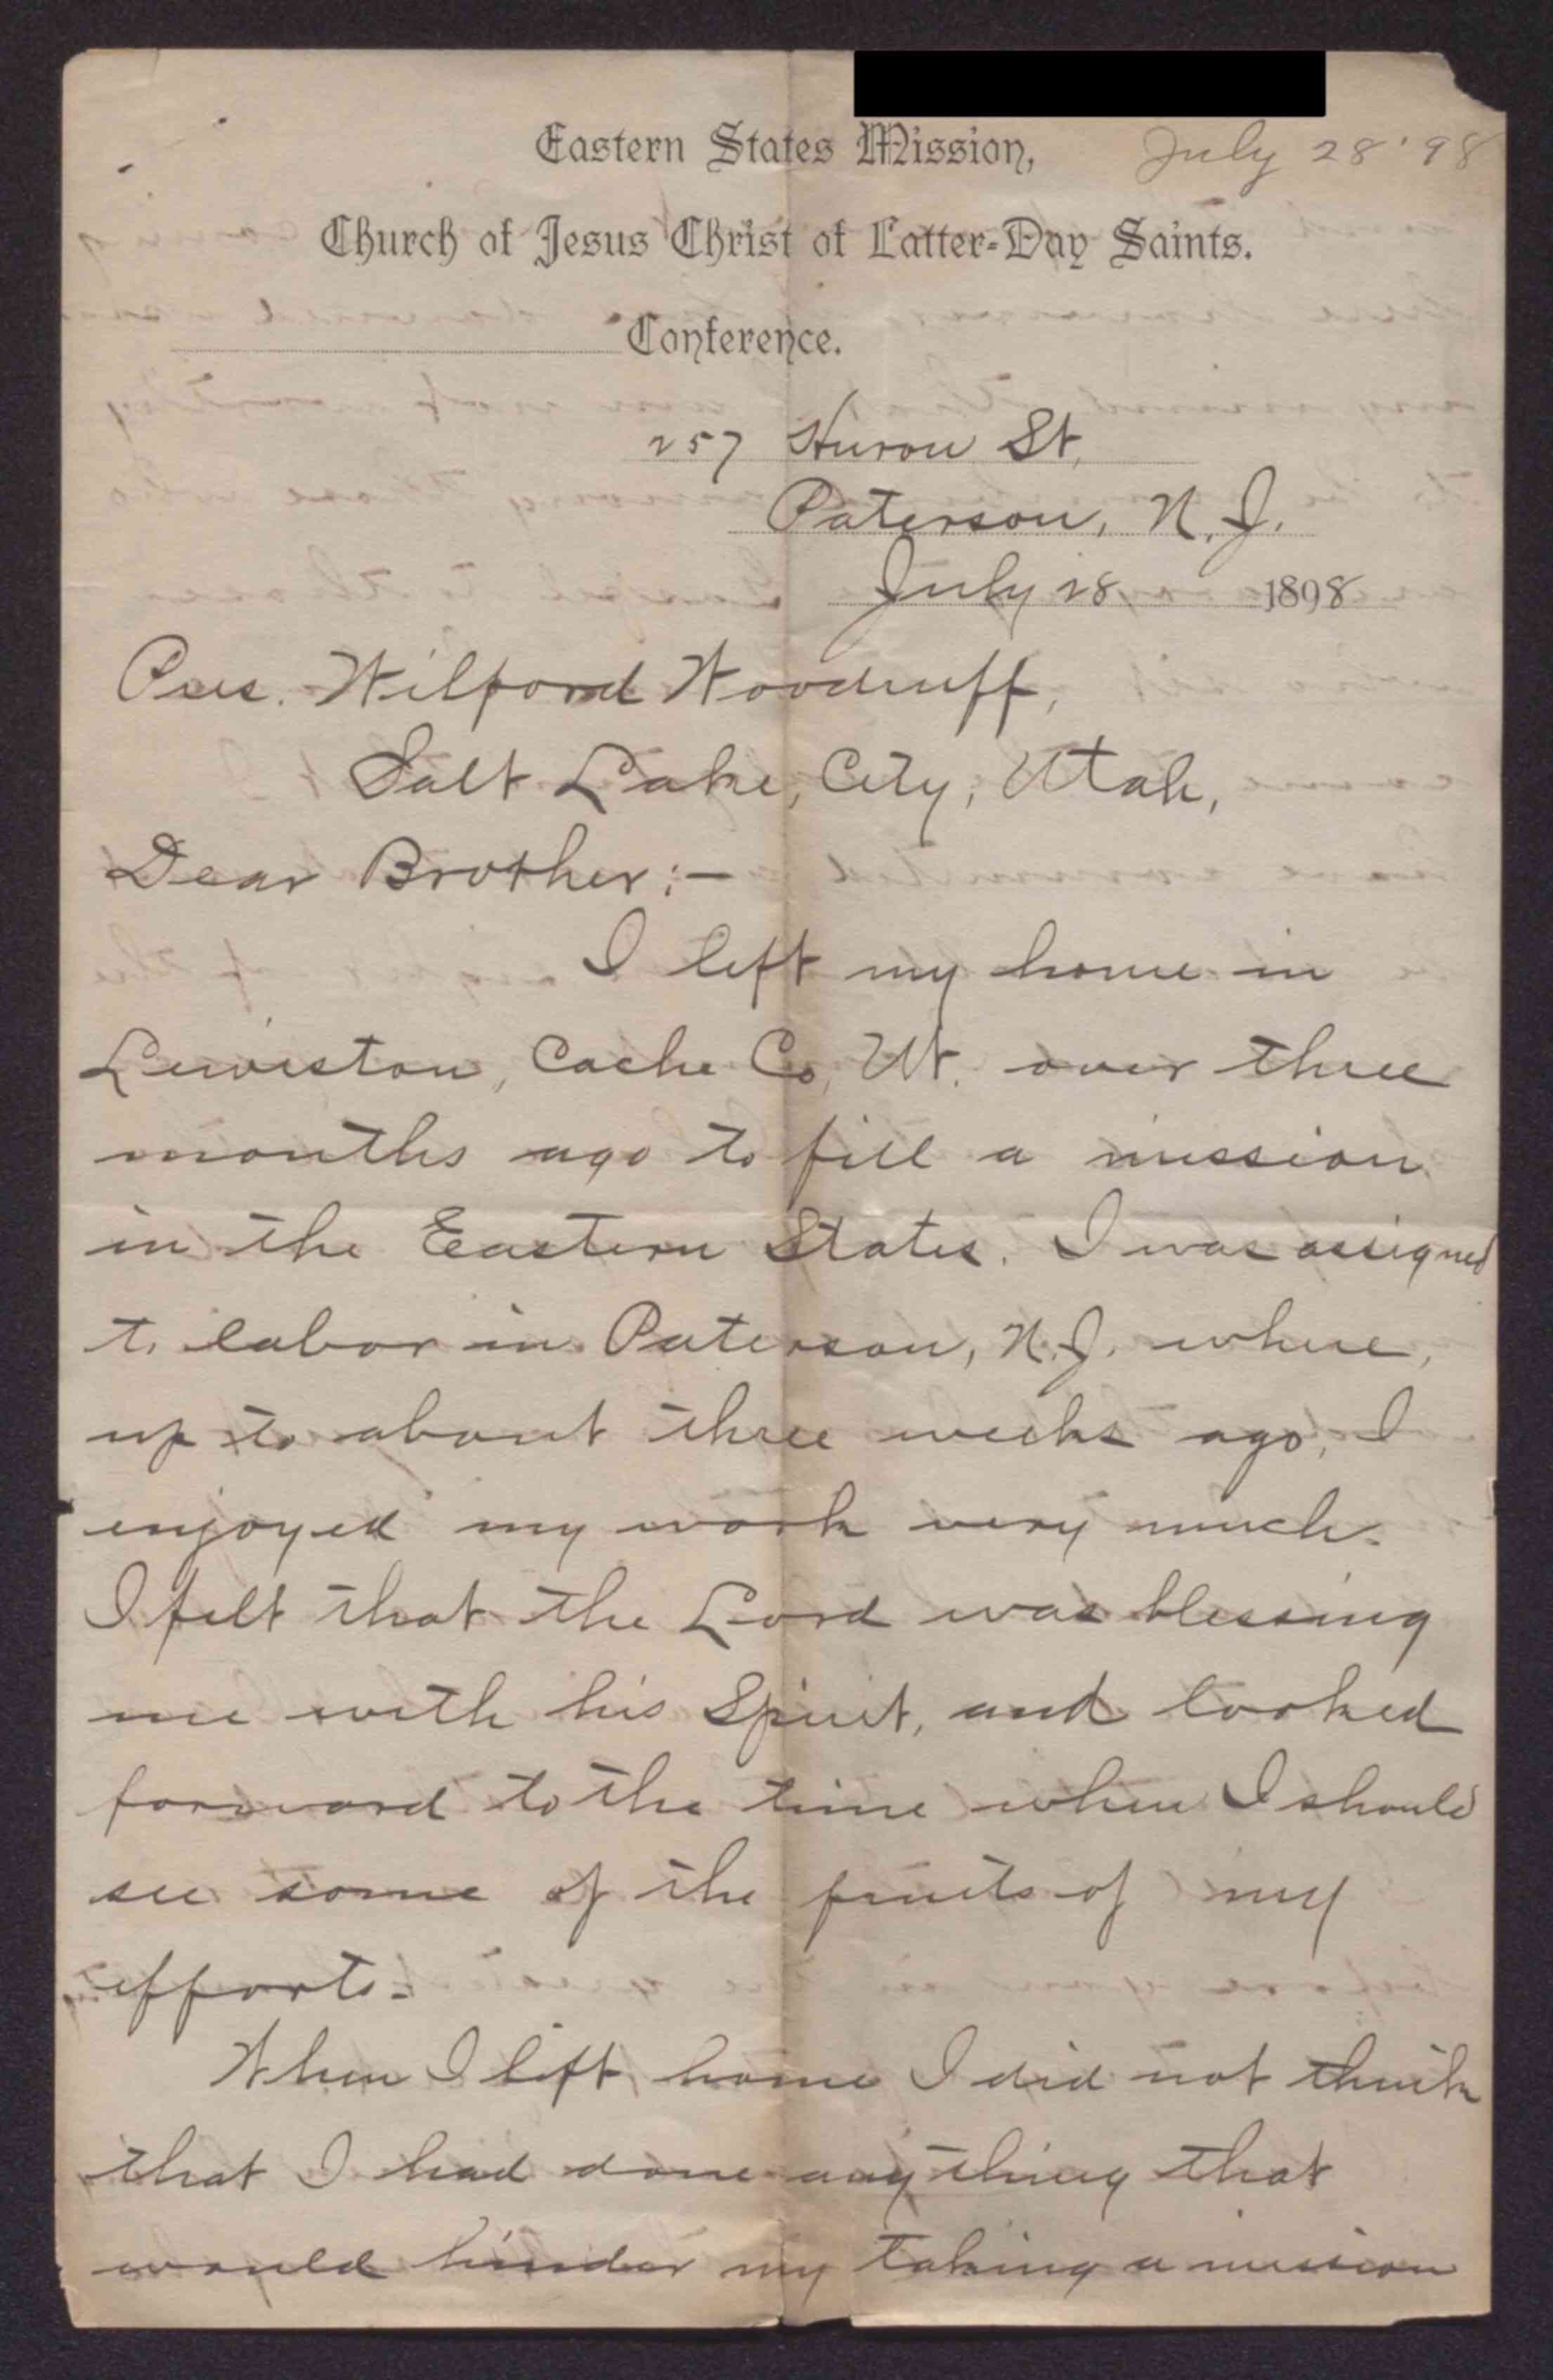 Eastern States Mission,
July 28 '98
Church of Jesus Christ of Latter-Day Saints.
Conference.
257 Huron St.
Paterson, N. J.
July 28 1898
Pres. Wilford Woodruff,
Salt Lake, City, Utah,
Dear Brother:—
I left my home in
Lewiston, Cache Co, Ut. over three
months ago to fill a mission
in the Eastern States. I was assigned
to labor in Paterson, N.J. where,
up to about three weeks ago, I
enjoyed my work very much.
I felt that the Lord was blessing
me with his Spirit, and looked
forward to the time when I should
see some of the fruits of my
efforts.
When I left home I did not think
that I had done anything that
would hinder my taking a mission